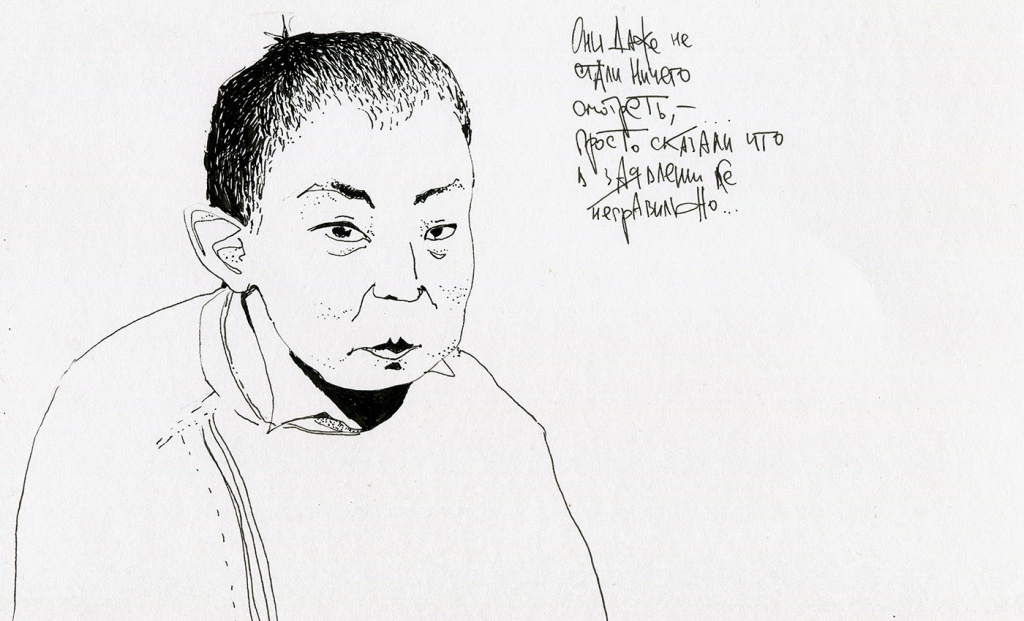 Они даже не
стали ничего
смотреть, –
просто сказали что
в заявлении все
неправильно...